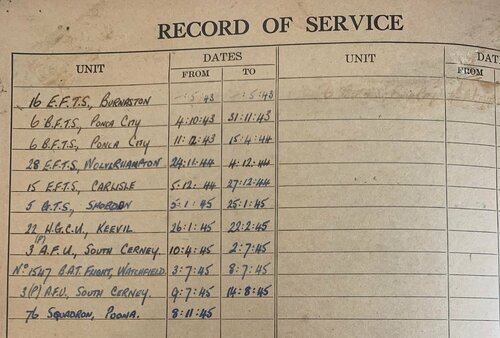 RECORD OF SERVICE
UNIT DATES UNIT DAT
FROM TO FROM
16 E.F.T.S., BURNASTON 5:43 5:43
6 B.F.T.S., PONCA CITY 4:10:43 31:11:43
6 B.F.T.S., PONCA CITY 11:12:43 15:4:44
28 E.F.T.S., WOLVERHAMPTON 24:11:44 4:12:44
15 E.F.T.S., CARLISLE 5:12:44 27:12:44
5 G.T.S., SHOBDON 5:1:45 25:1:45
22 H.G.C.U., KEEVIL 26:1:45 22:2:45
3 (P) A.F.U., SOUTH CERNEY. 10:4:45 2:7:45
No 1547 B.A.T. FLIGHT, WATCHFIELD. 3:7:45 8:7:45
3 (P) A.F.U., SOUTH CERNEY. 9:7:45 14:8:45
76 SQUADRON, POONA. 8:11:45